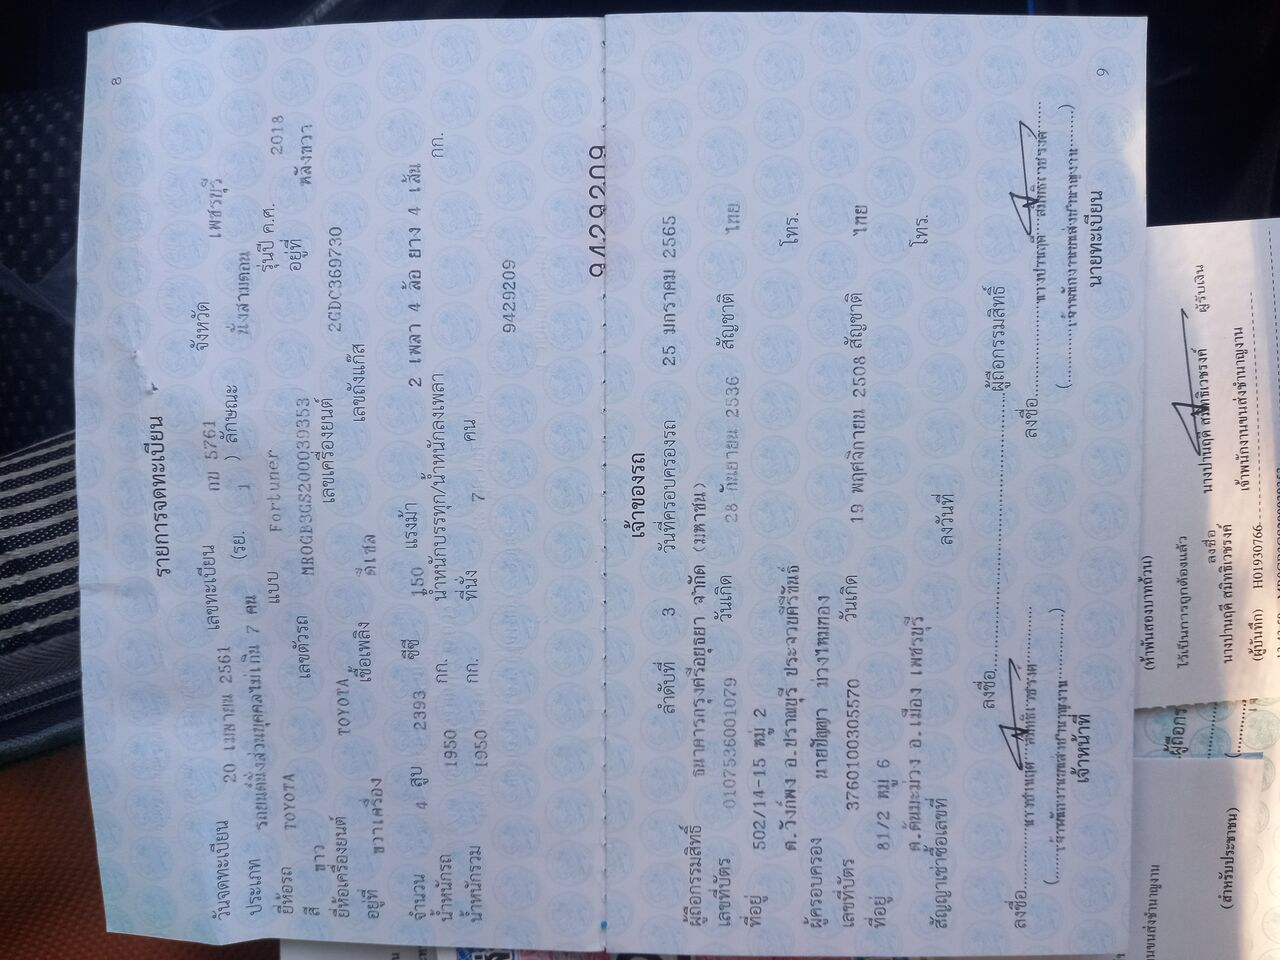 8
รายการจดทะเบียน
วันจดทะเบียน 20 เมษายน 2561 เลขทะเบียน กข 5761 จังหวัด เพชรบุรี
ประเภท รถยนต์นั่งส่วนบุคคลไม่เกิน 7 คน (รย. 1 ) ลักษณะ นั่งสามตอน
ยี่ห้อรถ TOYOTA แบบ Fortuner รุ่นปี ค.ศ. 2018
สี ขาว เลขตัวรถ MR0GB3GS200039353 อยู่ที่ หลังขวา
ยี่ห้อเครื่องยนต์ TOYOTA เลขเครื่องยนต์ 2GDC369730
อยู่ที่ ขวาเครื่อง เชื้อเพลิง ดีเซล เลขถังแก๊ส
จำนวน 4 สูบ 2393 ซีซี 150 แรงม้า 2 เพลา 4 ล้อ ยาง 4 เส้น
น้ำหนักรถ 1950 กก. น้ำหนักบรรทุก/น้ำหนักลงเพลา กก.
น้ำหนักรวม 1950 กก. ที่นั่ง 7 คน
9429209
9429209
เจ้าของรถ
ลำดับที่ 3 วันที่ครอบครองรถ 25 มกราคม 2565
ผู้ถือกรรมสิทธิ์ ธนาคารกรุงศรีอยุธยา จำกัด (มหาชน)
เลขที่บัตร 0107536001079 วันเกิด 28 กันยายน 2536 สัญชาติ ไทย
ที่อยู่ 502/14-15 หมู่ 2
ต.วังก์พง อ.ปราณบุรี ประจวบคีรีขันธ์ โทร.
ผู้ครอบครอง นายปัญญา ม่วงไหมทอง
เลขที่บัตร 3760100305570 วันเกิด 19 พฤศจิกายน 2508 สัญชาติ ไทย
ที่อยู่ 81/2 หมู่ 6
ต.ต้นมะม่วง อ.เมือง เพชรบุรี โทร.
สัญญาเช่าซื้อเลขที่ ลงวันที่
ลงชื่อ ผู้ถือกรรมสิทธิ์
ลงชื่อ นางปานฤดี สมิทธิเวชรงค์ ลงชื่อ นางปานฤดี สมิทธิเวชรงค์
(เจ้าพนักงานขนส่งชำนาญงาน) (เจ้าพนักงานขนส่งชำนาญงาน)
เจ้าหน้าที่ นายทะเบียน
9
(ห้าพันสองบาทถ้วน)
ไว้เป็นการถูกต้องแล้ว
ลงชื่อ นางปานฤดี สมิทธิเวชรงค์ ผู้รับเงิน
นางปานฤดี สมิทธิเวชรงค์ เจ้าพนักงานขนส่งชำนาญงาน
(ผู้บันทึก) H01930766
ผู้ถือกร
ลงชื่อ
นขนส่งชำนาญงาน
(สำหรับประชาชน)